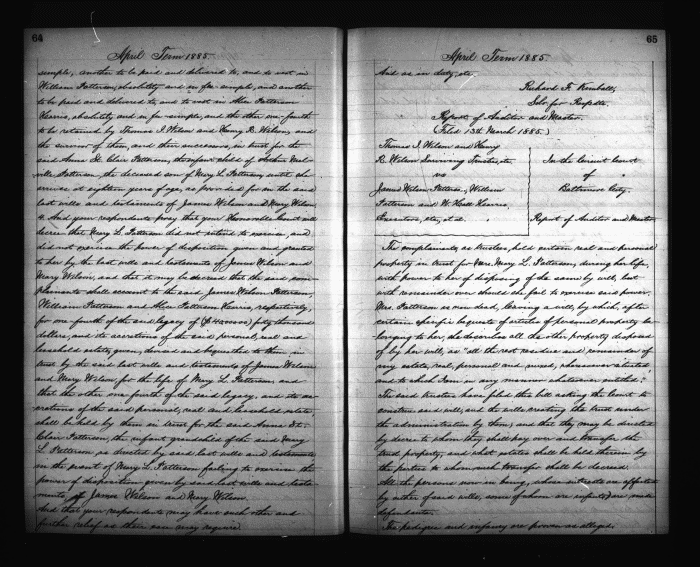 64
April Term 1885.
simple, another to be paid and delivered to, and to vest in
William Patterson, absolutely and in fee simple, and another
to be paid and delivered to, and to vest in Alice Patterson
Harris, absolutely and in fee simple, and the other one fourth
to be retained by Thomas J. Wilson and Henry R. Wilson, and
the survivor of them, and their successors, in trust for the
said Anne St. Clair Patterson, the infant child of
ville Patterson, the deceased son of Mary L. Patterson until she
arrives at eighteen years of age, as provided for in the said
last wills and testaments of James Wilson and Mary Wilson.
4. And your respondents pray that your Honorable Court will
decree that Mary L. Patterson did not intend to exercise, and
did not exercise the power of disposition given and granted
to her by the last wills and testaments of James Wilson and
Mary Wilson, and that it may be decreed that the said com-
plainants shall account to the said James Wilson Patterson,
William Patterson and Alice Patterson Harris, respectively,
for one fourth of the said legacy of fifty thousand
dollars, and its accretions of the said personal, real and
leasehold estate, given, devised and bequeathed to them in
trust by the said last wills and testaments of James Wilson
and Mary Wilson for the life of Mary L. Patterson and
that the other one fourth of the said legacy, and its ac-
cretions of the said personal, real and leasehold estate,
shall be held by them in trust for the said Anne St.
Clair Patterson, the infant grandchild of the said Mary
L. Patterson, as directed by said last wills and testaments
in the event of Mary L. Patterson failing to exercise the
power of disposition given by said last wills and testa-
ments, of James Wilson and Mary Wilson.
And that your respondents may have such other and
further relief as their case may require.
65
April Term 1885.
And as in duty, etc,
Richard F. Kimball,
Solr. for Respdts.
Report of Auditor and Master.
(Filed 13th March 1885.)
Thomas J. Wilson and Henry
R. Wilson Surviving Trustees, etc
vs
James Wilson Patterson, William
Patterson and W. Hall Harris,
Executors, etc, et al.
In the Circuit Court
of
Baltimore City.
Report of Auditor and Master
The complainants, as trustees, held certain real and personal
property in trust for Mrs. Mary L. Patterson, during her life,
with power to her of disposing of the same by will, but
with remainders over should she fail to exercise said power.
Mrs. Patterson is now dead, leaving a will, by which, after
certain specific bequests of articles of personal property be-
longing to her, she describes all the other property disposed
of by her will, as "all the rest residue and remainder of
my estate, real, personal and mixed, wheresoever situated
and to which I am in any manner whatsoever entitled."
The said trustees have filed this bill asking the Court to
construe said will, and the wills creating the trust under
the administration by them, and that they may be directed
by decree to whom they shall pay over and transfer the
trust property, and what estates shall be held therein by
the parties to whom such transfer shall be decreed.
All the persons now in being, whose interests are affected
by either of said wills, some of whom are infants, are made
defendants.
The pedigree and infancy are proven as alleged.